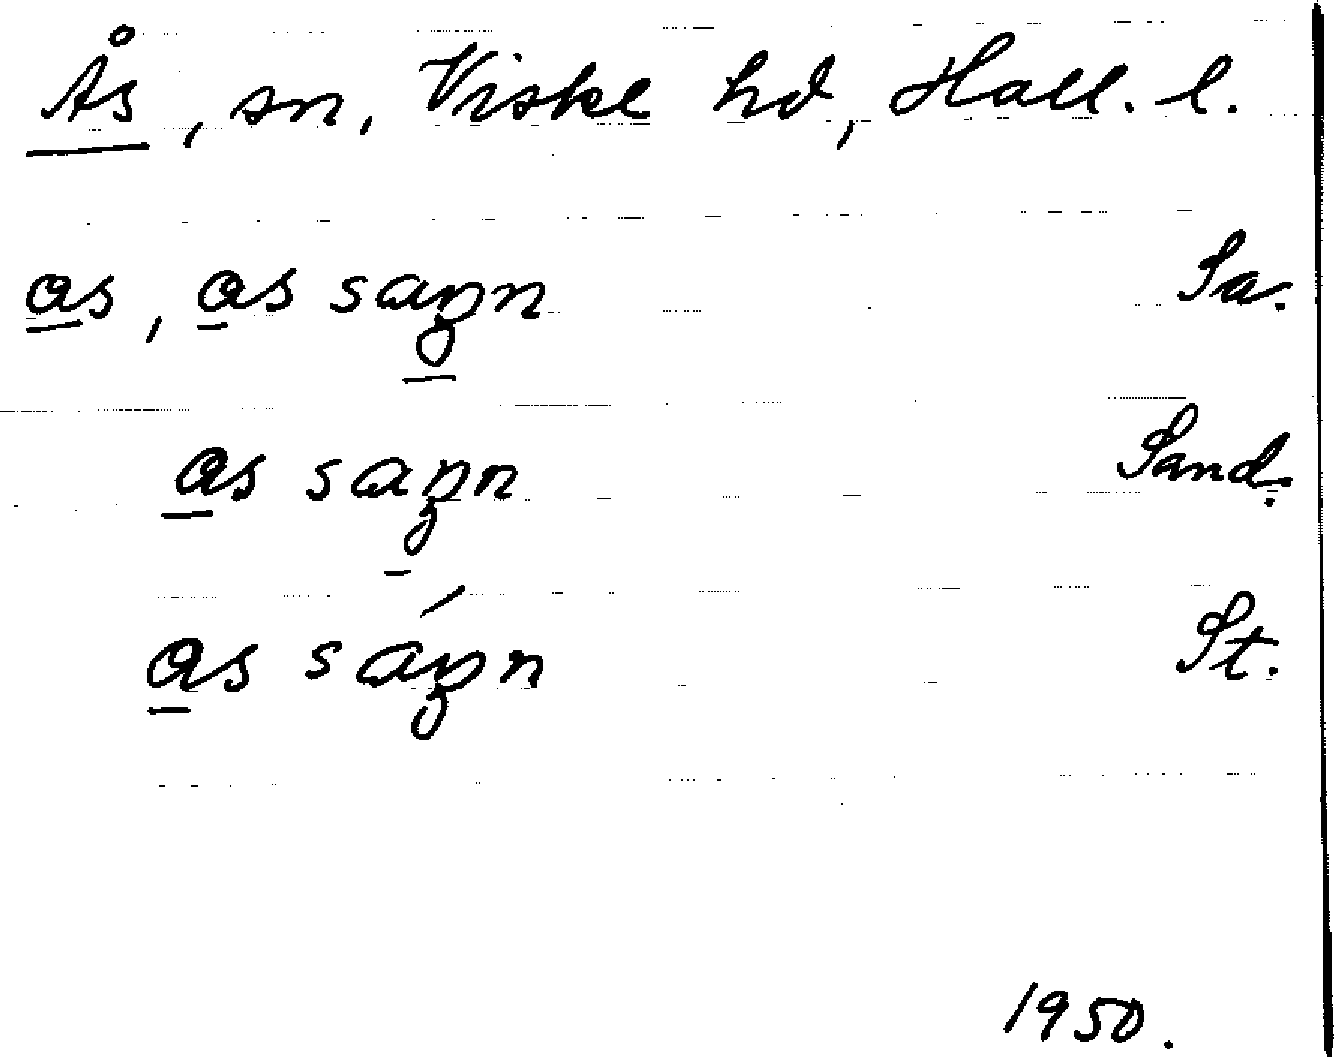 Ås, sn, Viske hd, Hall. l.
as, as saŋn Sa.
as saŋn Sand.
as sáŋn St.
1950.